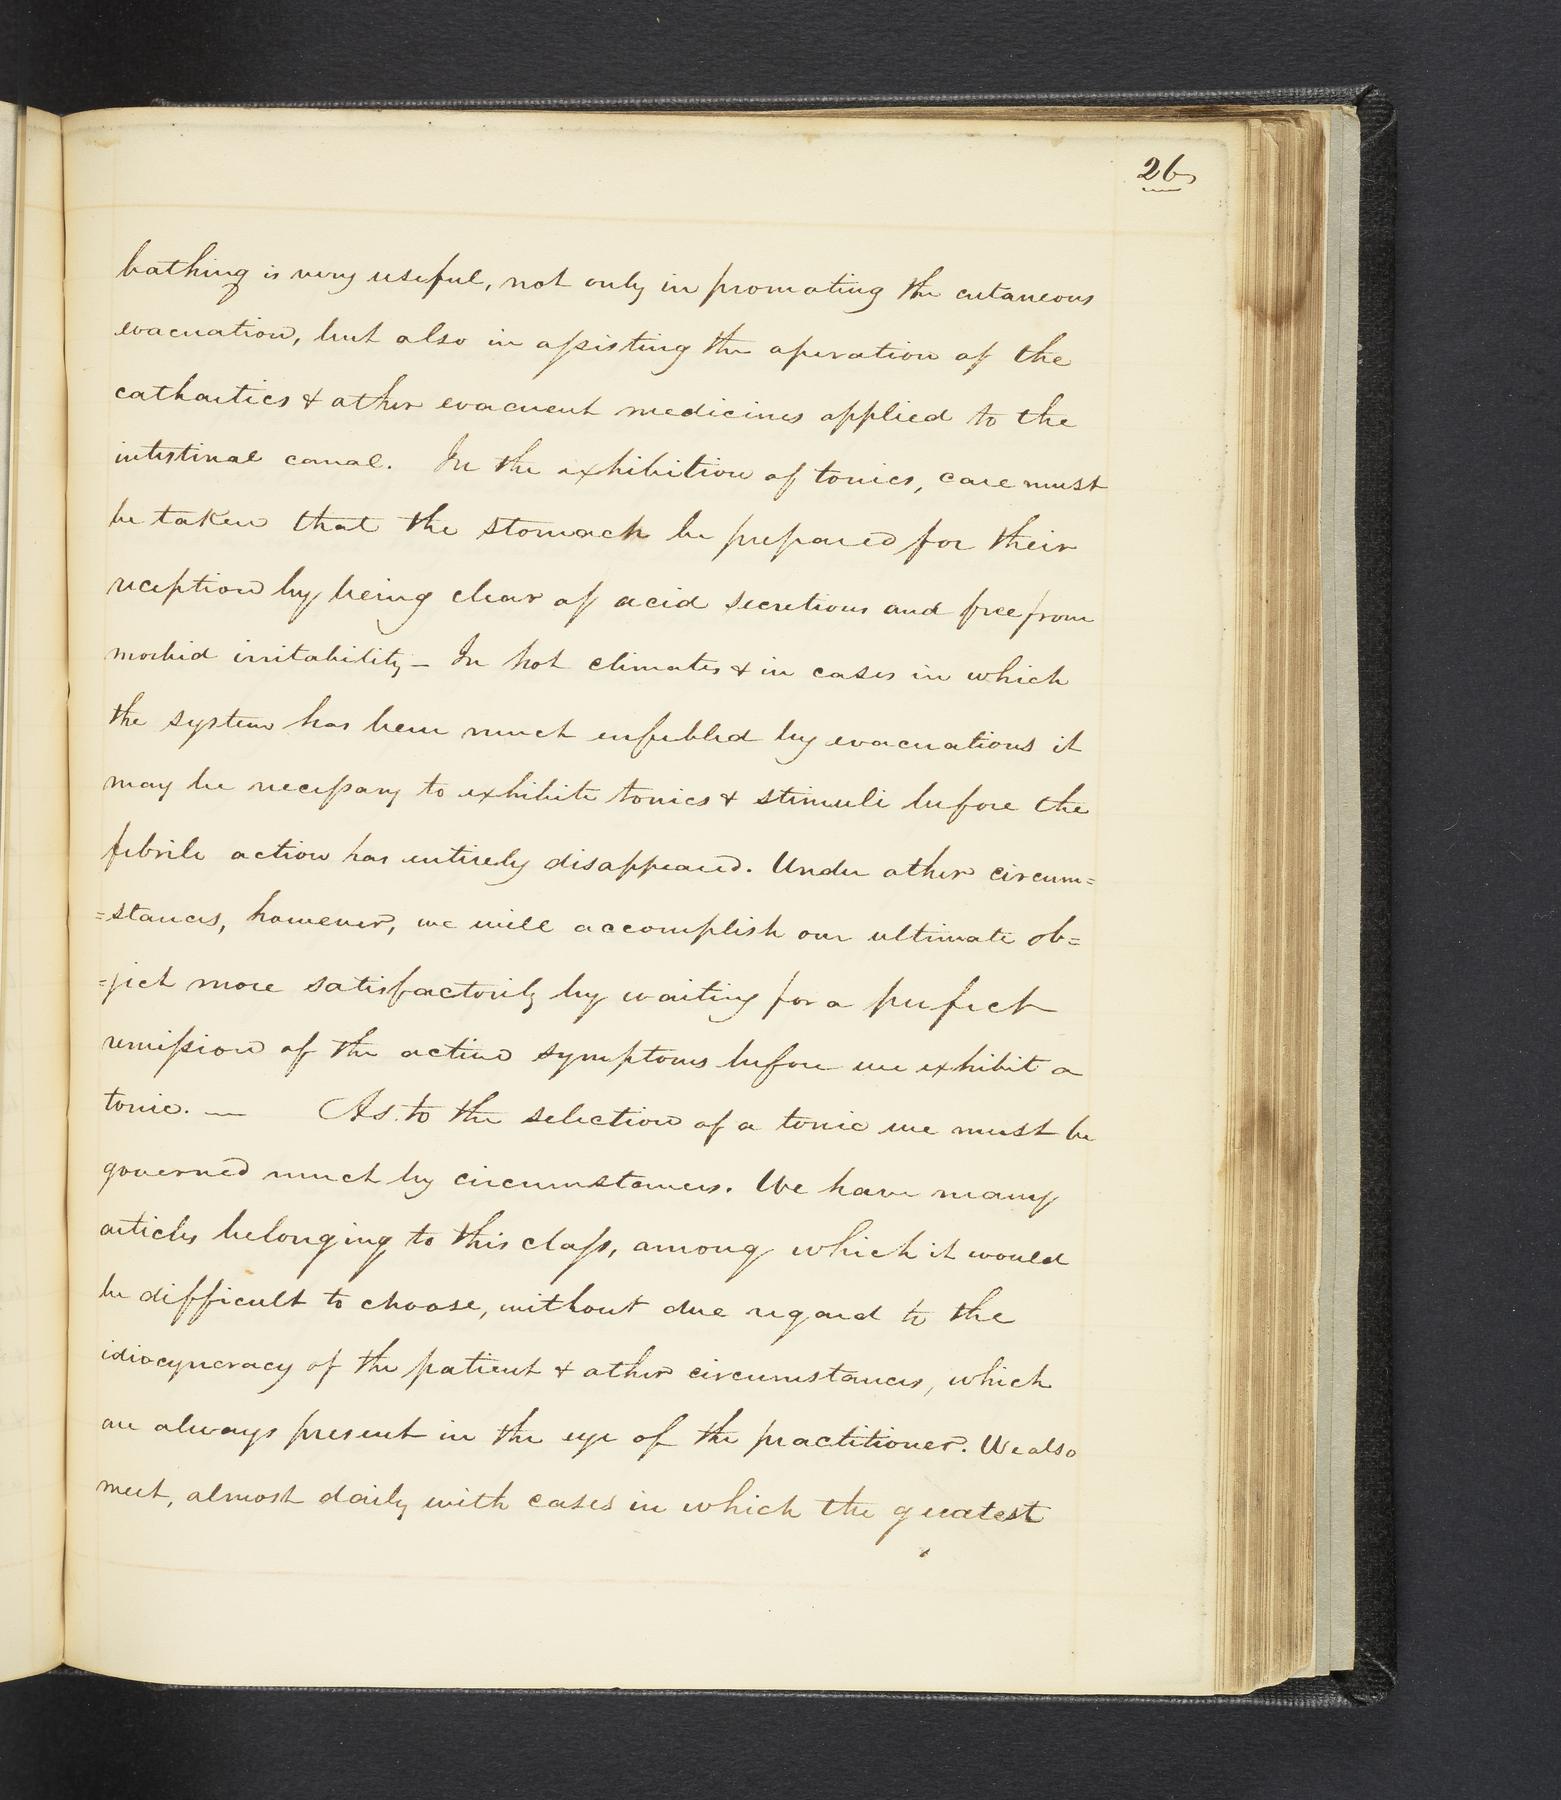 26
bathing is very useful, not only in promoting the cutaneous
evacuation, but also in assisting the operation of the
cathartics & other evacuent medicines applied to the
intestinal canal. In the exhibition of tonics, care must
be taken that the stomach be prepared for their
reception by being clear of acid secretions and free from
morbid irritability — In hot climates & in cases in which
the system has been much enfeebled by evacuations it
may be necessary to exhibite tonics & stimuli before the
febrile action has entirely disappeared. Under other circum=
=stances, however, we will accomplish our ultimate ob=
=ject more satisfactorily by waiting for a perfect
remission of the active symptoms before we exhibit a
tonic. — As to the selection of a tonic we must be
governed much by circumstances. We have many
articles belonging to this class, among which it would
be difficult to choose, without due regard to the
idiocyncracy of the patient & other circumstances, which
are always present in the eye of the practitioner. We also
meet, almost daily with cases in which the greatest